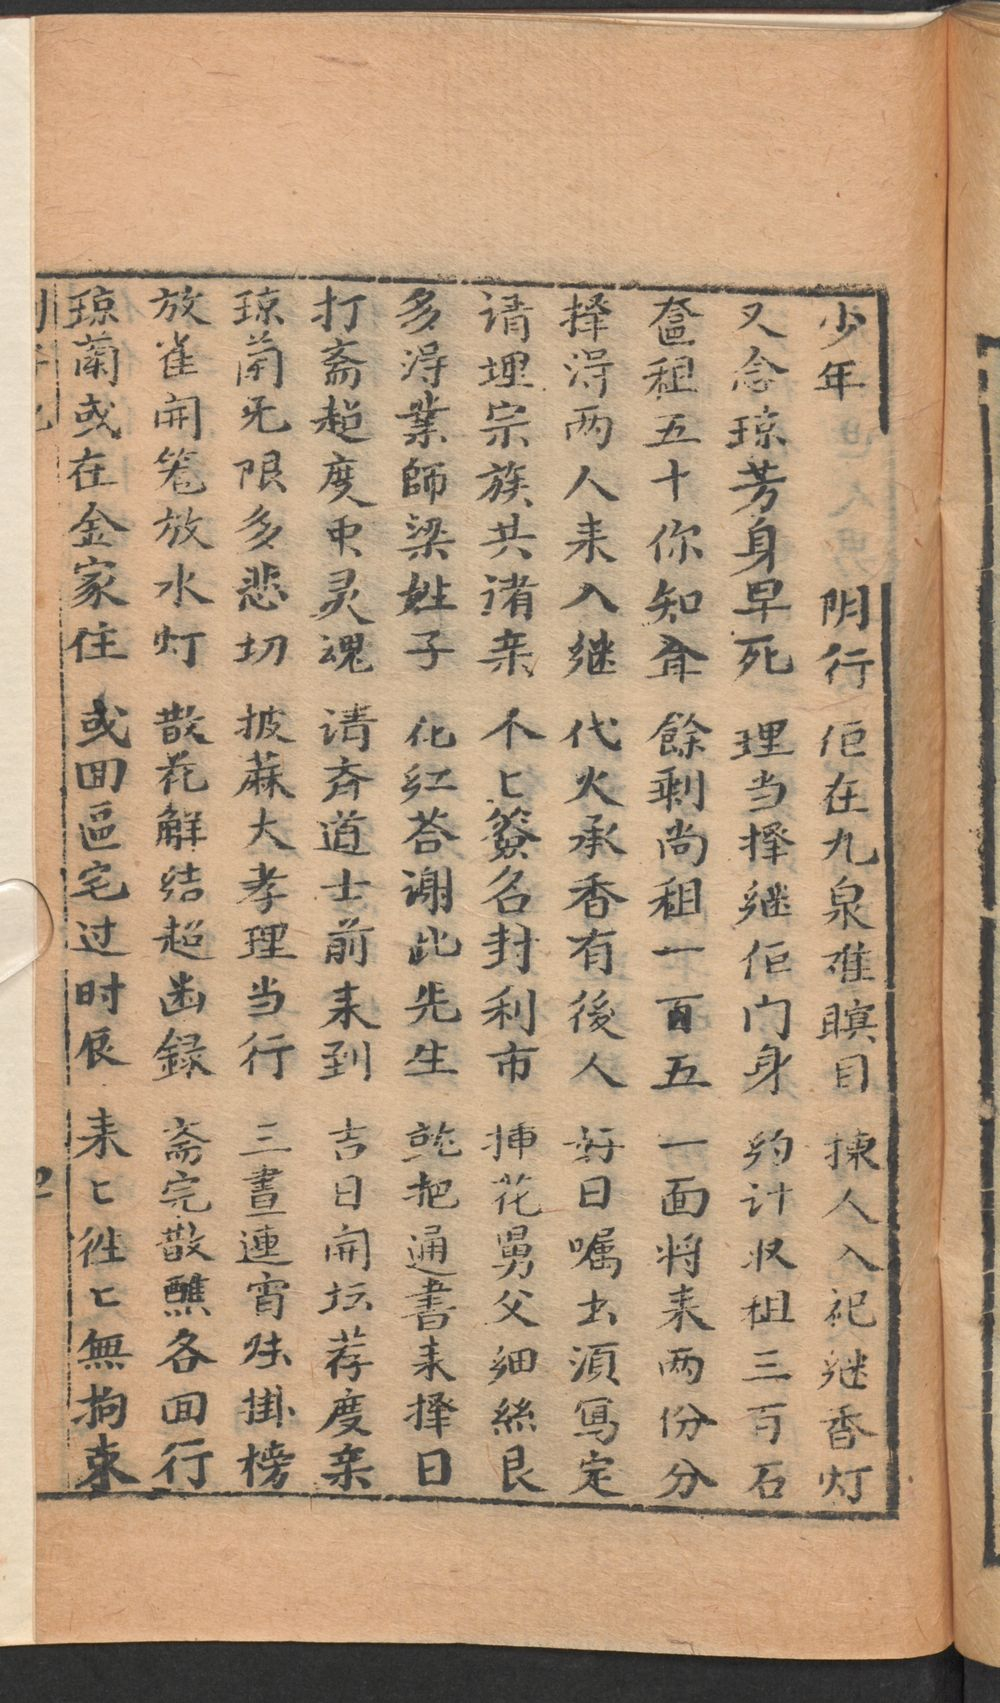 少年　　　阴行　佢在九泉难瞑目　揀人入祀继香灯
又念琼芳身早死　理当择继佢门身　约计收租三百石
奩租五十你知音　餘剩尚租一百五　一面将来两份分
择浔两人来入继　代火承香有後人　好日嘱书湏写定
请埋宗族共诸亲　个匕簽名封利市　挿花舅父细丝艮
多浔業師梁姓子　化红荅谢此先生　就把通書来择日
打斋超度更灵魂　请齐道士前来到　吉日開坛荐度亲
琼蘭无限多悲切　披蔴大孝理当行　三晝連宵炷掛榜
放雀開笼放水灯　散花解结超幽録　斋完散醮各囬行
琼蘭或在金家住　或囬區宅过时辰　来匕徃匕無拘束